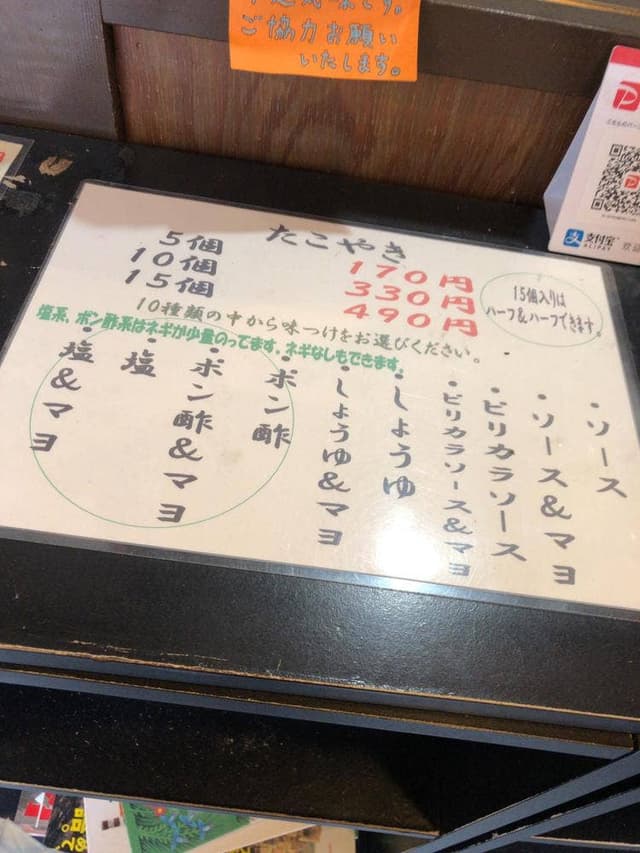 ご協力お願い
いたします。
支付宝
ALIPAY
たこやき
5個 170円
10個 330円
15個 490円
15個入りは
ハーフ&ハーフできます。
10種類の中から味つけをお選びください。
塩系、ポン酢系はネギが少量のってます。ネギなしもできます。
・ソース
・ソース&マヨ
・ピリカラソース
・ピリカラソース&マヨ
・しょうゆ
・しょうゆ&マヨ
・ポン酢
・ポン酢&マヨ
・塩
・塩&マヨ